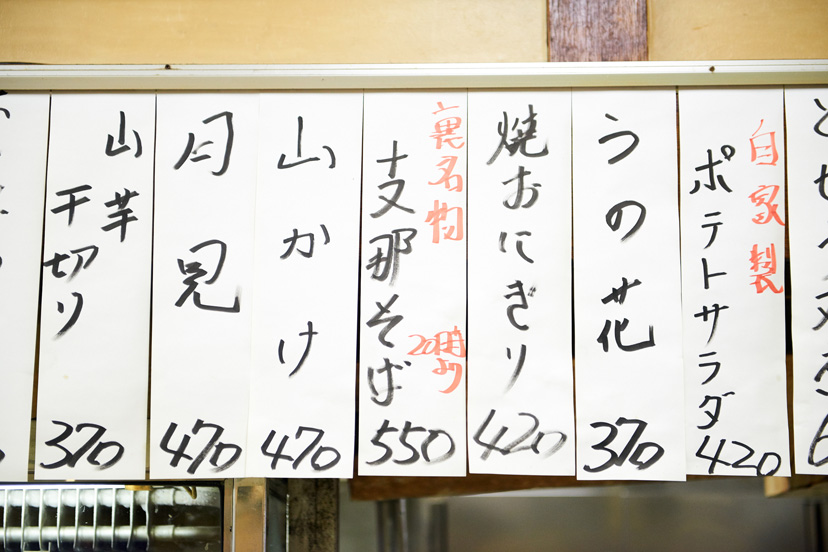 自家製
ポテトサラダ
420
うの花
370
焼おにぎり
420
裏名物
支那そば
550
山かけ
470
月見
470
山芋
千切り
370